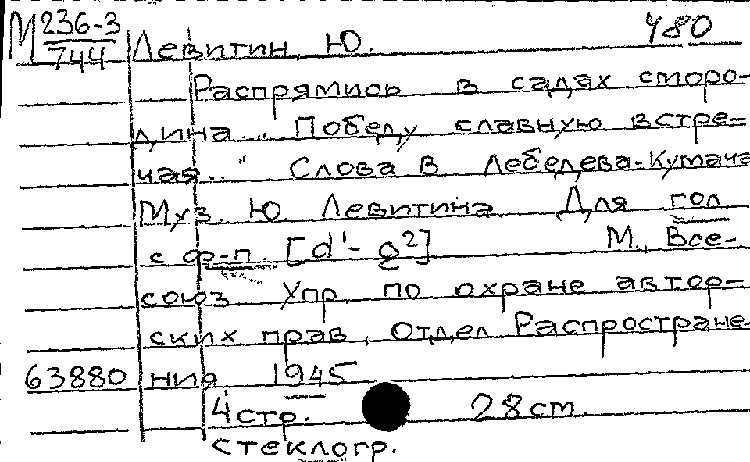 М 236-3 480
744 Левитин, Ю.
Распрямись в садах сморо-
дина... "Победу славную встре-
чая..." Слова В Лебедева-Кумача
Муз. Ю. Левитина Для гол
с ф-п. [d¹-g²] М., Все-
союз Упр. по охране автор-
ских прав, Отдел Распростране-
63880 ния 1945
4 стр. 28 cm.
стеклогр.